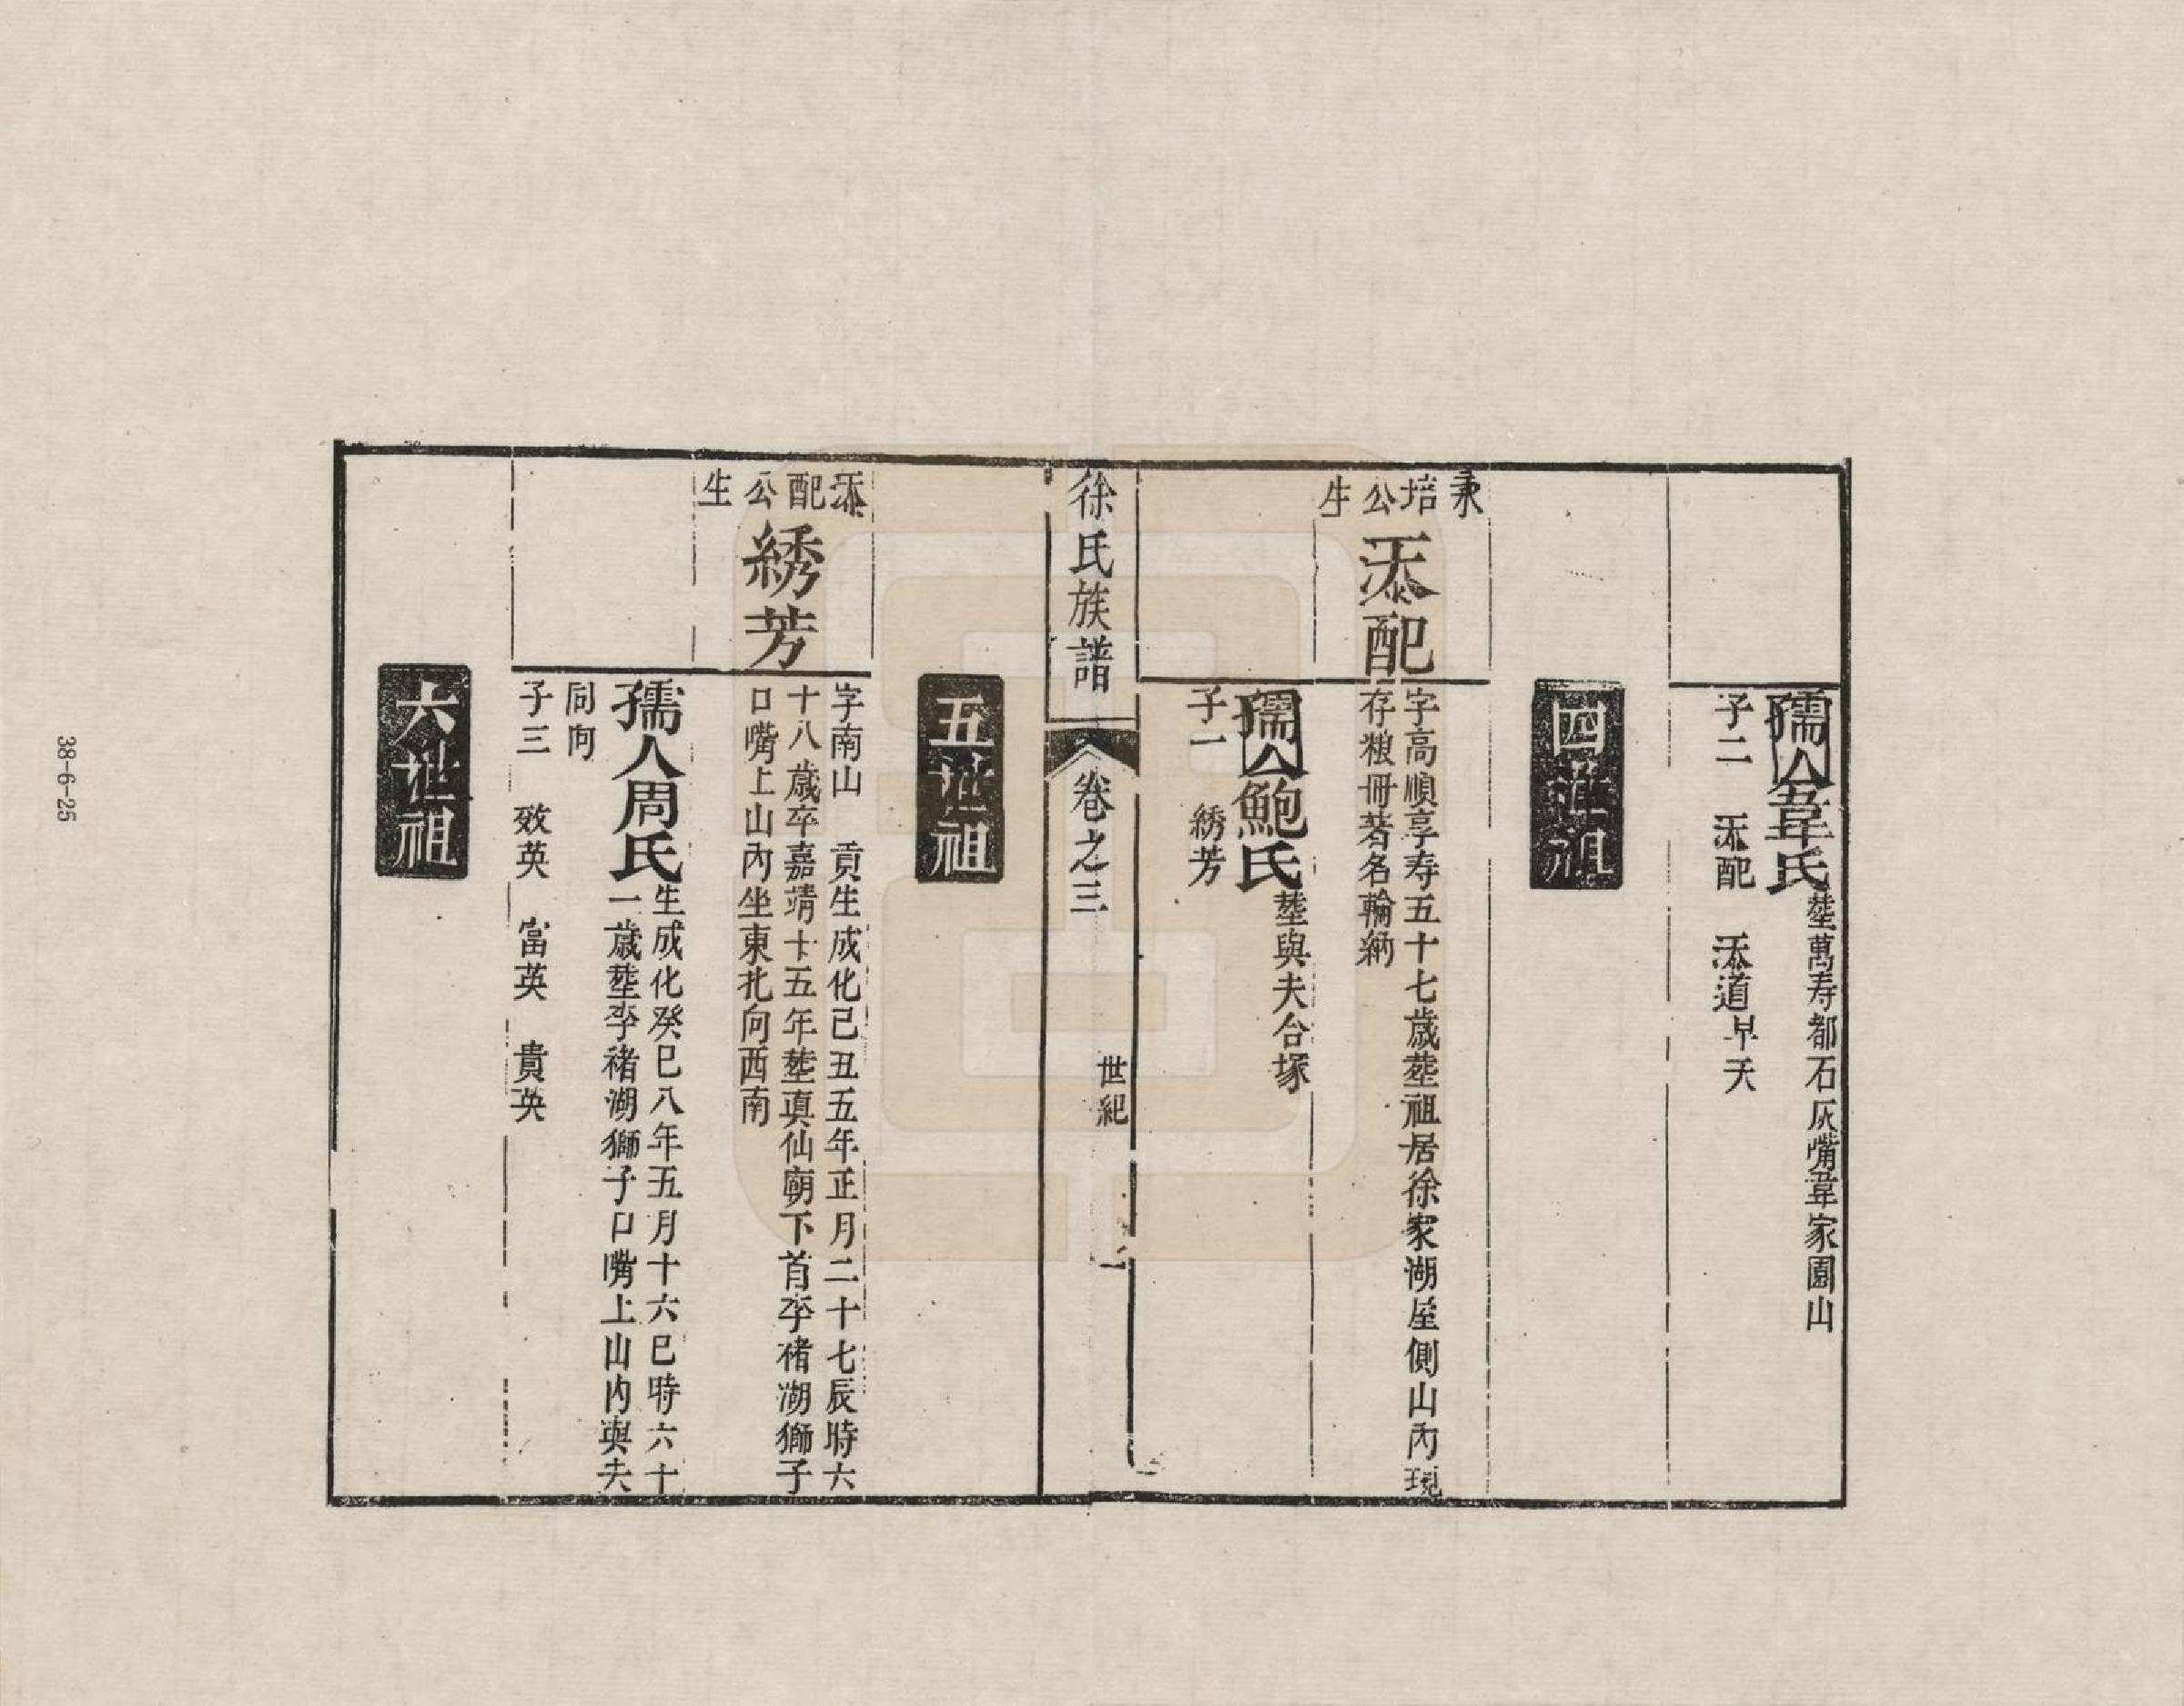 孺人韋氏
塟萬寿都石灰嘴韋家園山
子二 添配 添道早夭
四世祖
秉培公生
添配
字高順享寿五十七歳塟祖居徐家湖屋側山內現
存粮冊著名輪納
孺人鮑氏
塟與夫合塚
子一 綉芳
徐氏族譜
卷之三
世紀
二
五世祖
添配公生
綉芳
字南山 貢生成化己丑五年正月二十七辰時六
十八歳卒嘉靖十五年塟真仙廟下首李褚湖獅子
口嘴上山內坐東北向西南
孺人周氏
生成化癸巳八年五月十六巳時六十
一歳塟李褚湖獅子口嘴上山內與夫
同向
子三 效英 富英 貴英
六世祖
38-6-25